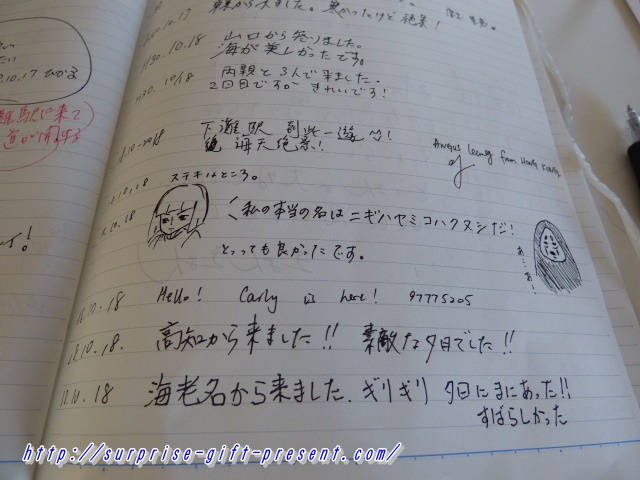 10.17
H30.10.18 山口から参りました。
海が美しかったです。
H30.10/18 両親と3人で来ました。
2回目です。きれいです!
下灘駅 到此一遊!
海天絶景!
Angus Leung from Hong Kong
10.18 ステキなところ。
10.18 私の本当の名はニギハヤミコハクヌシだ!
とっっても良かったです。
あ…あ…!
10.18 Hello! Carly is here! 97775205
18.10.18. 高知から来ました!! 素敵な夕日でした!!
18.10.18 海老名から来ました、ギリギリ 夕日にまにあった!!
すばらしかった
10.17
駅に来て
http://surprise-gift-present.com/